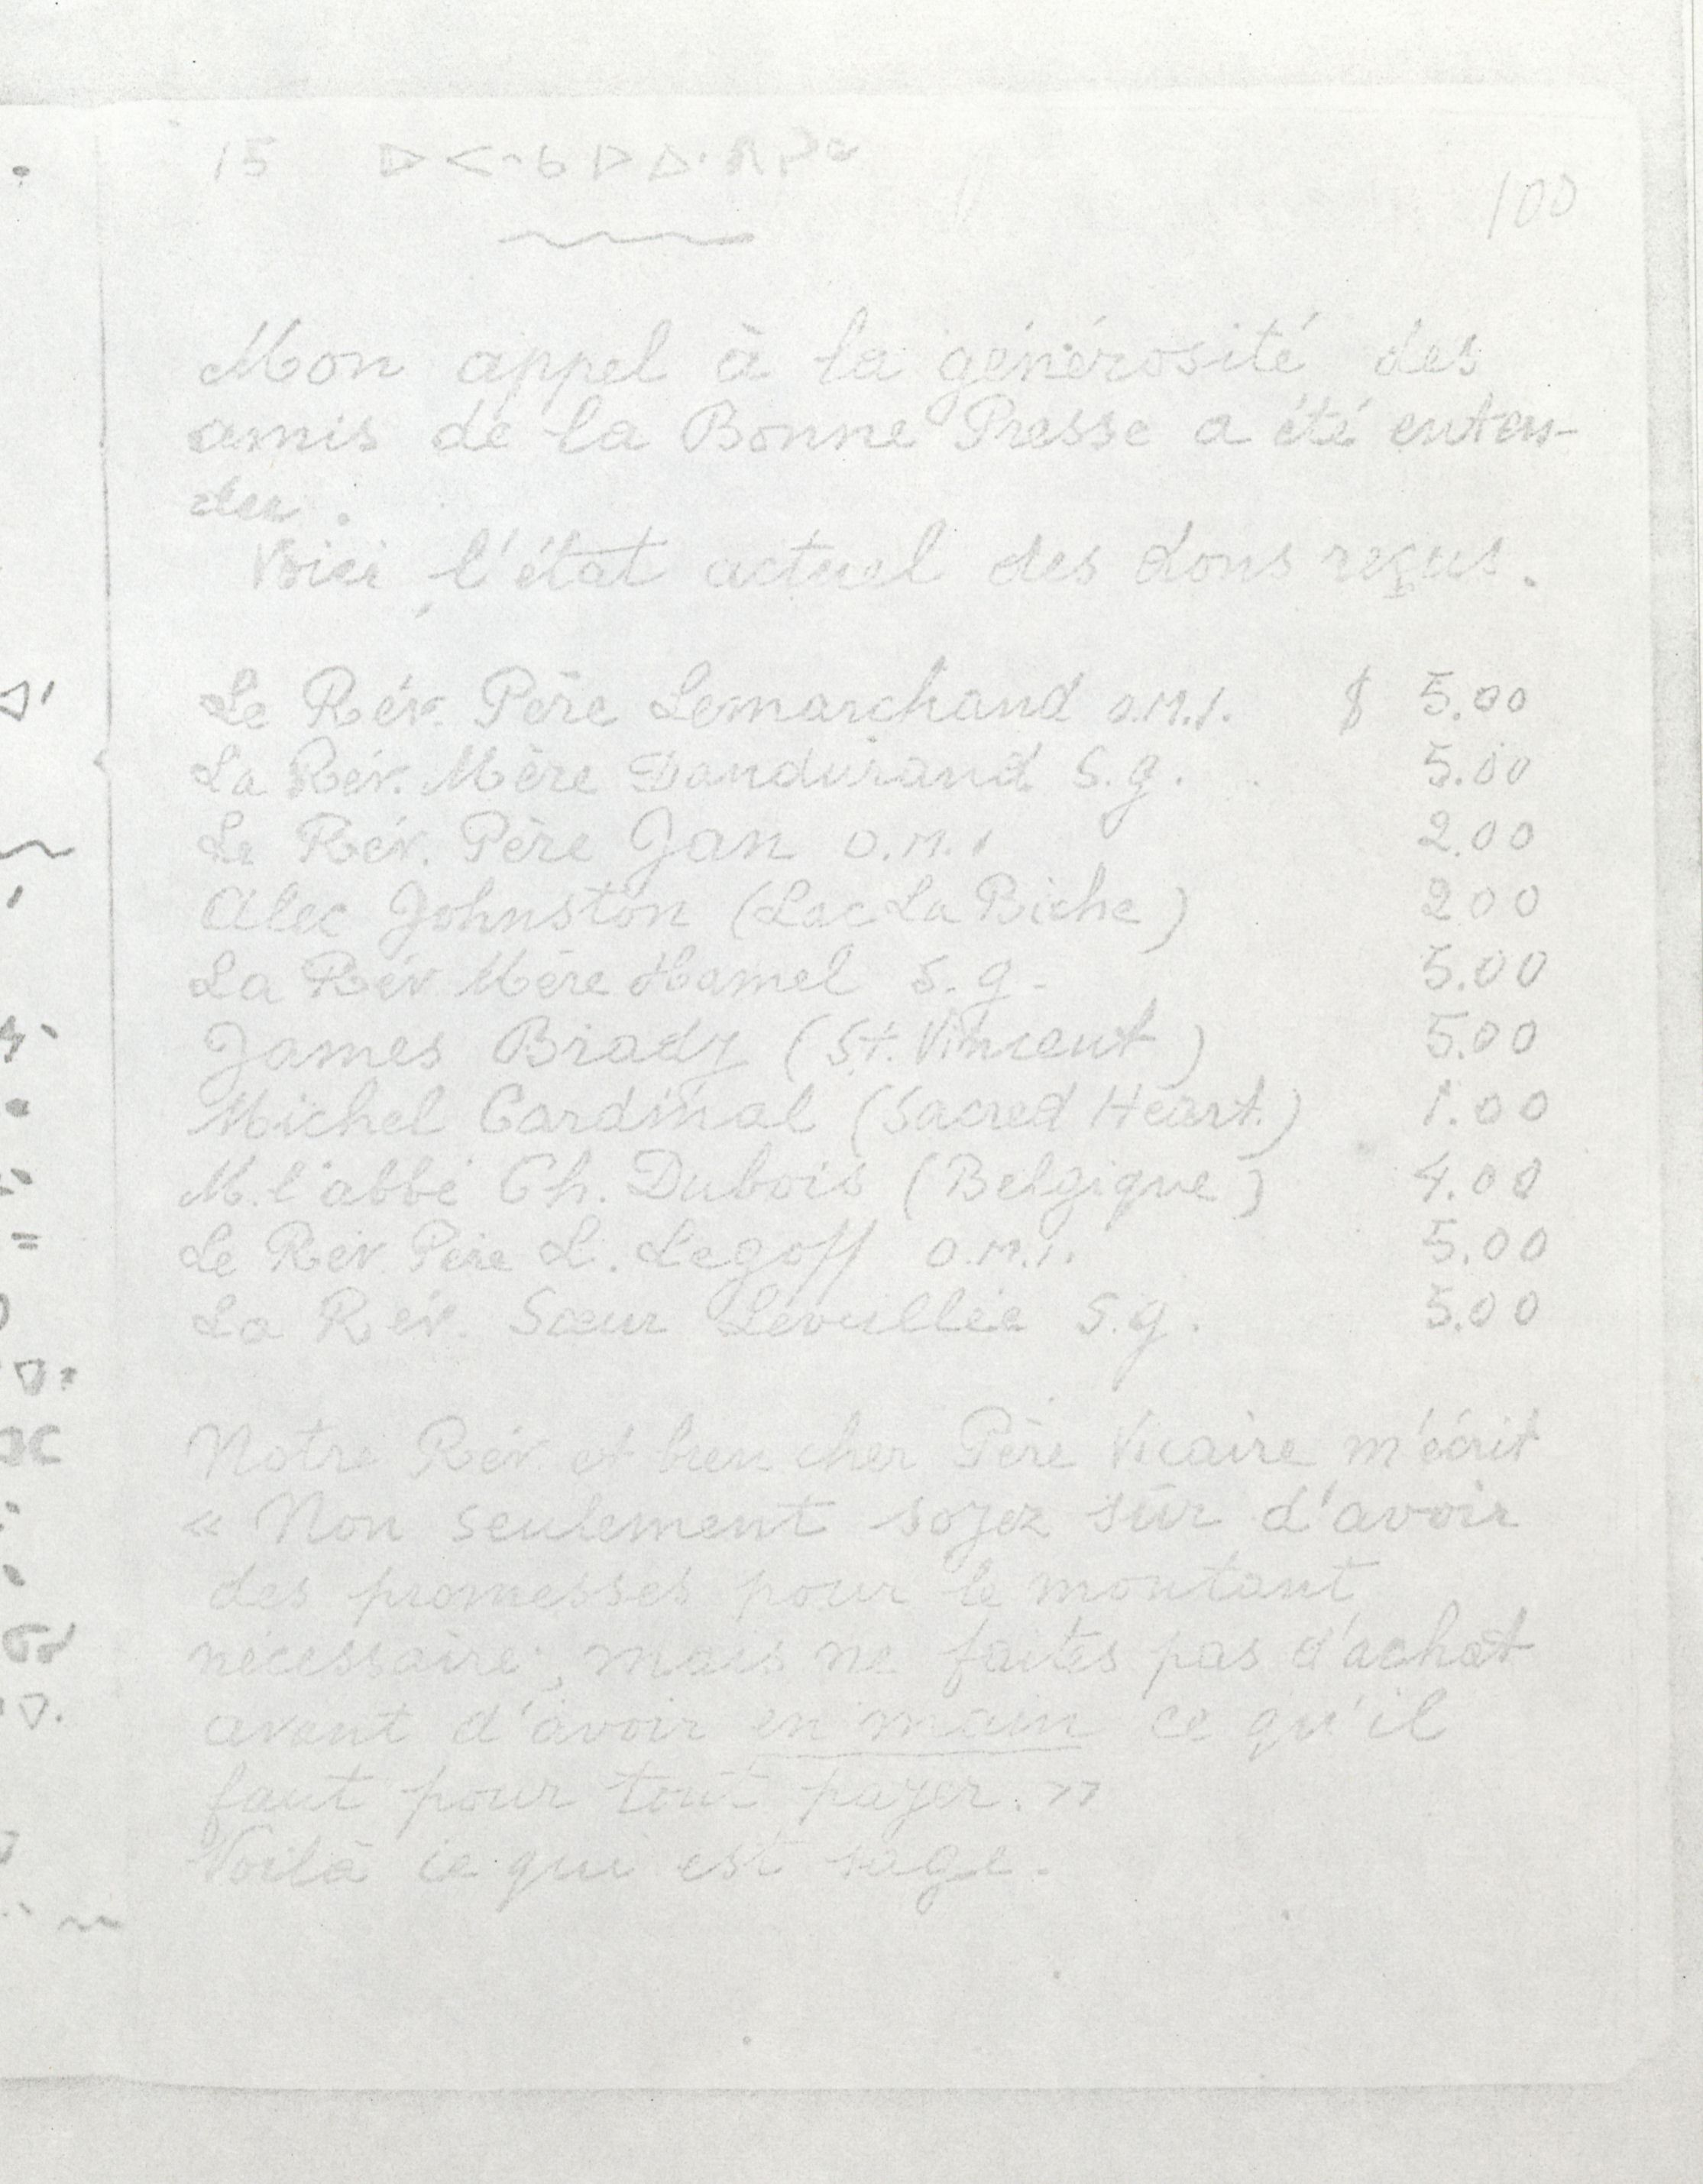 15 ᐅᐸᐢᑲᐅᐃᐧᐱᓯᒼ
100
Mon appel à la générosité des
amis de la Bonne Presse a été enten-
du.
Voici l'état actuel des dons reçus.
Le Rév. Père Lemarchand o.m.i. $ 5.00
La Rév. Mère Dandurand s.g. 5.00
Le Rév. Père Jan o.m.i 2.00
Alec Johnston (Lac La Biche) 2.00
La Rév. Mère Hamel s.g. 5.00
James Brady (St. Vincent) 5.00
Michel Cardinal (Sacred Heart.) 1.00
M. l'abbé Ch. Dubois (Belgique) 4.00
Le Rév. Père L. Legoff o.m.i. 5.00
La Rév. Sœur Léveillée s.g. 5.00
Notre Rév. et bien cher Père Vicaire m'écrit
« Non seulement soyez sûr d'avoir
des promesses pour le montant
nécessaire, mais ne faites pas d'achat
avant d'avoir en main ce qu'il
faut pour tout payer. »
Voilà ce qui est sage.